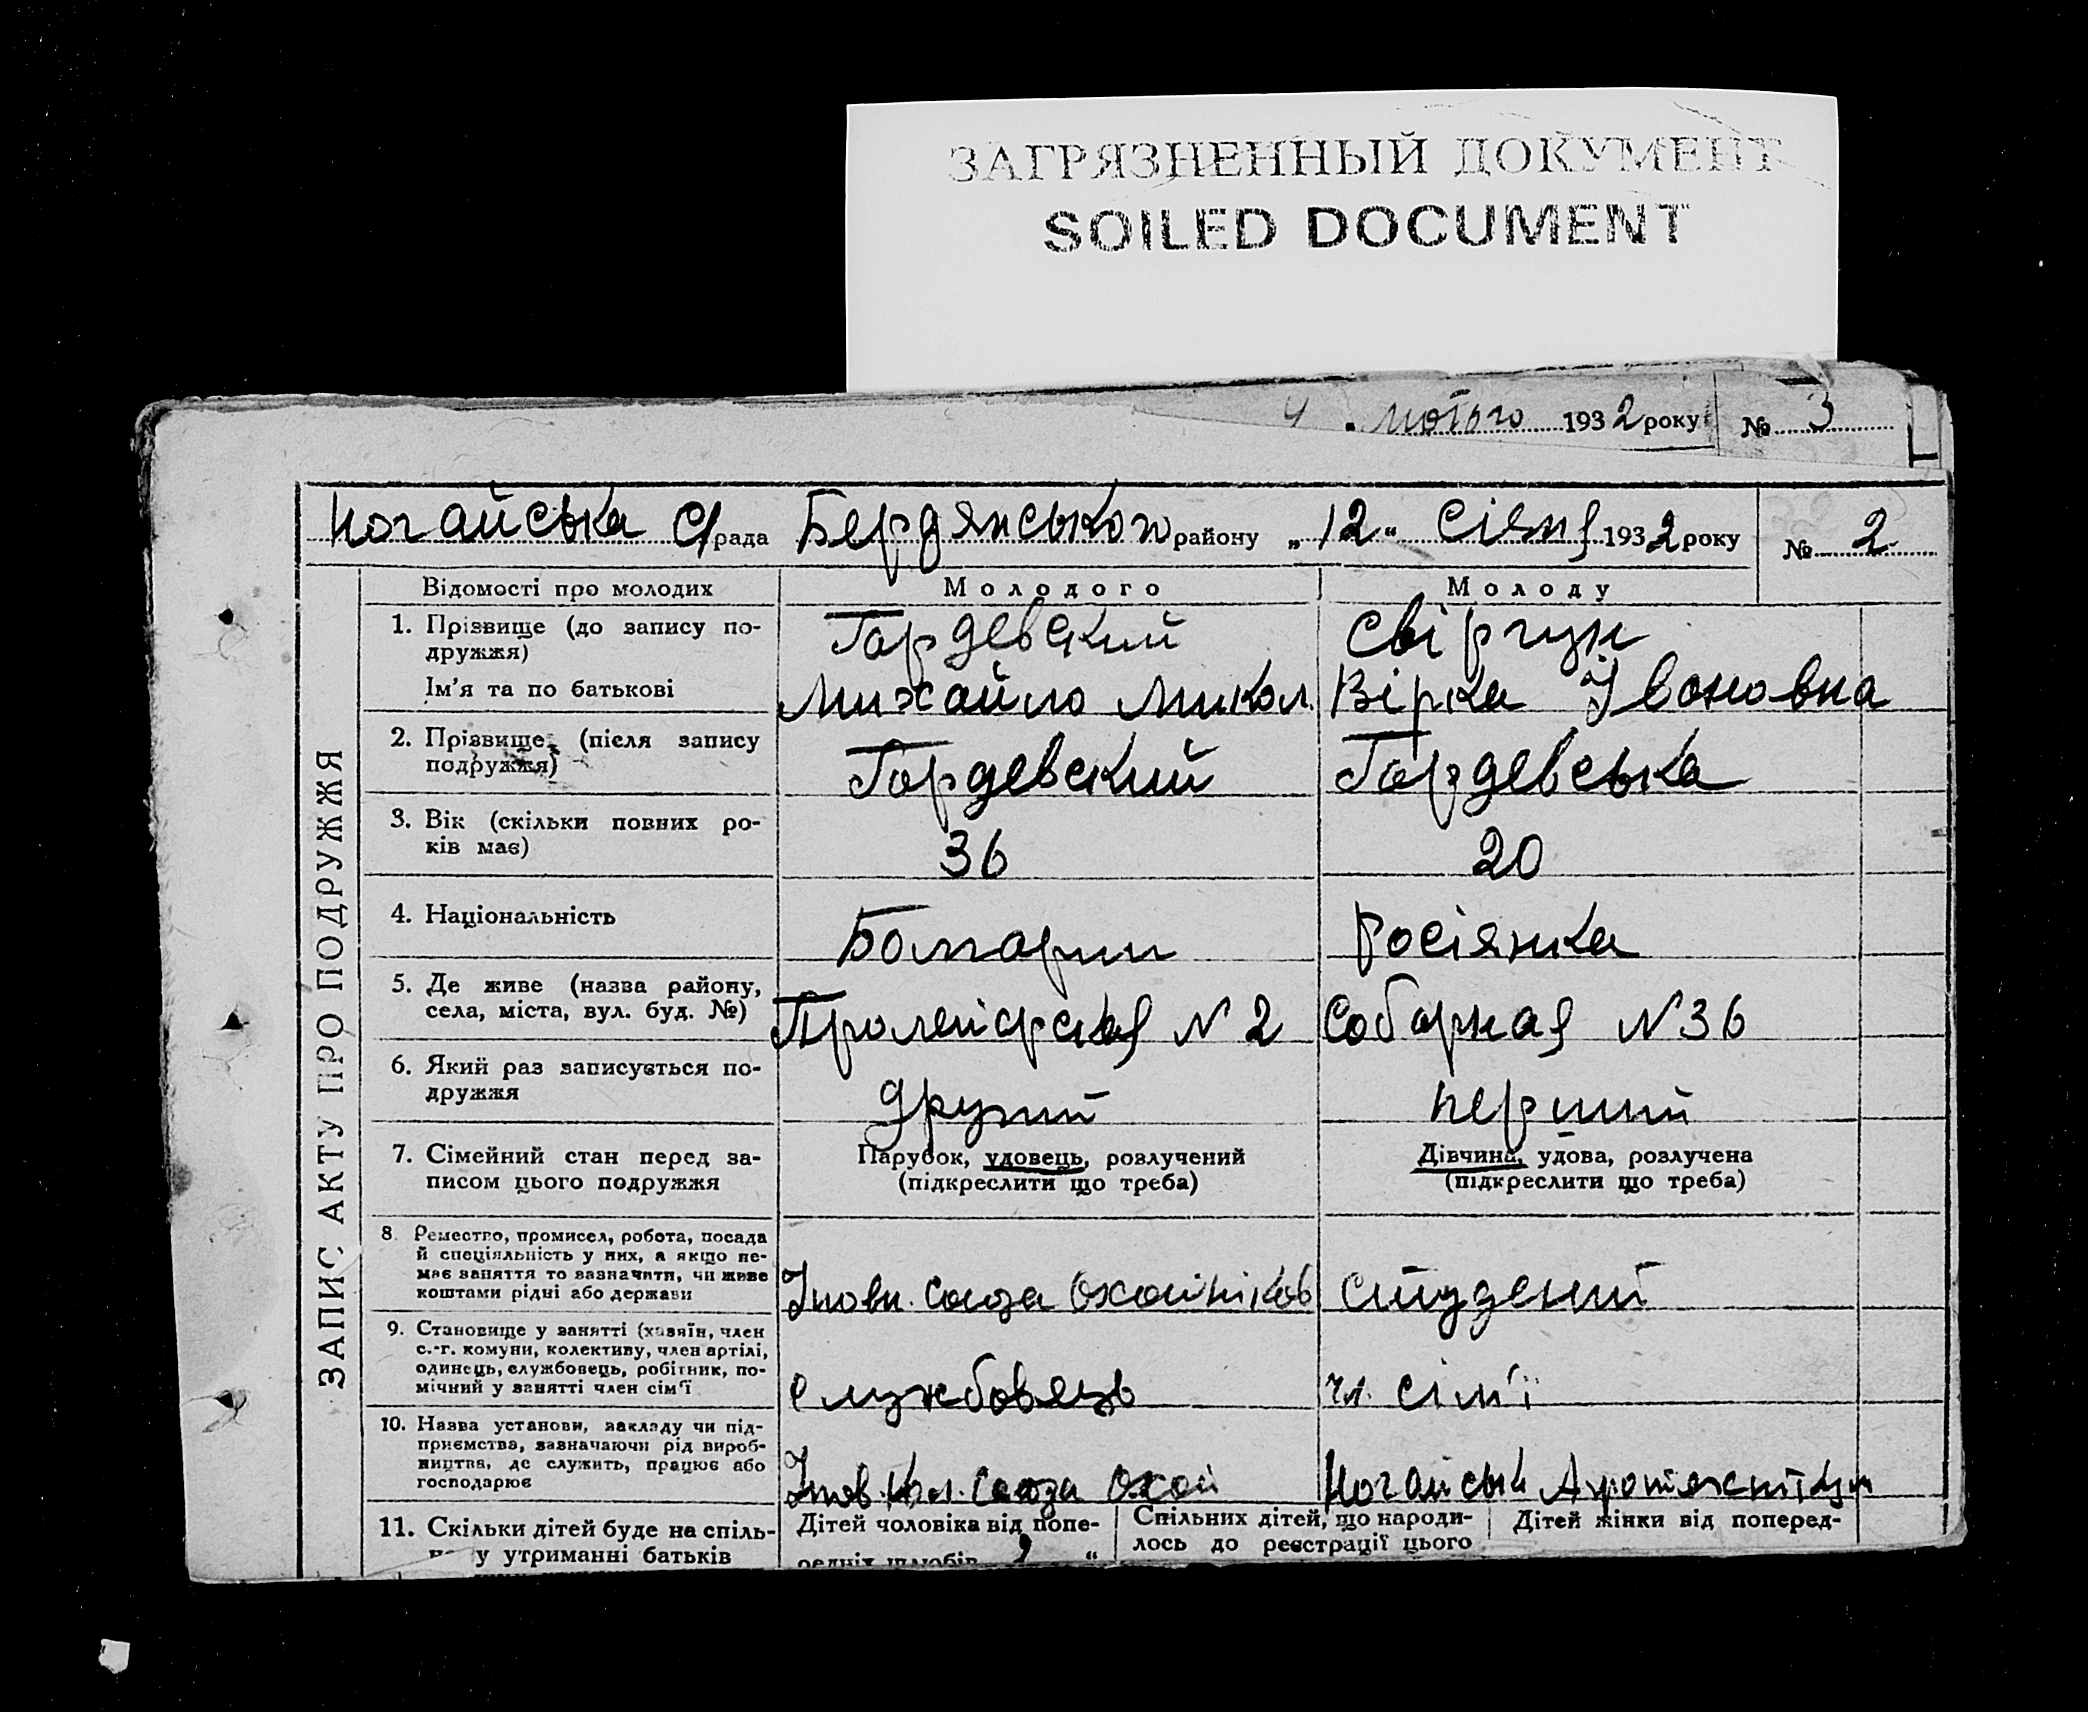 ЗАГРЯЗНЕННЫЙ ДОКУМЕНТ
SOILED DOCUMENT
4 " лютого 1932 року № 3
Ногайська С/рада Бердянськой району „12" Січня 1932 року № 2
ЗАПИС АКТУ ПРО ПОДРУЖЖЯ
Відомості про молодих Молодого Молоду
1. Прізвище (до запису по- Гордевский Свіргун
дружжя)
Ім'я та по батькові Михайло Микол. Вірка Івоновна
2. Прізвище (після запису Гордевский Гордевська
подружжя)
3. Вік (скільки повних ро- 36 20
ків має)
4. Національність Болгарин Росіянка
5. Де живе (назва району, Пролетарская N 2 Соборная N 36
села, міста, вул. буд. №)
6. Який раз записується по- другий перший
дружжя
7. Сімейний стан перед за- Парубок, удовець, розлучений Дівчина, удова, розлучена
писом цього подружжя (підкреслити що треба) (підкреслити що треба)
8. Ремество, промисел, робота, посада
й спеціяльність у них, а якщо не-
має заняття то зазначити, чи живе
коштами рідні або держави союза Охотніков студент
9. Становище у занятті (хазяїн, член
с.-г. комуни, колективу, член артілі,
одинець, службовець, робітник, по- службовець чл. сім'ї
мічний у занятті член сім'ї
10. Назва установи, закладу чи під-
приємства, зазначаючи рід вироб-
ництва, де служить, працює або союза Охот Ногайськ
господарює
11. Скільки дітей буде на спіль- Дітей чоловіка від попе- Спільних дітей, що народи- Дітей жінки від поперед-
у утриманні батьків редніх шлюбів лось до реєстрації цього